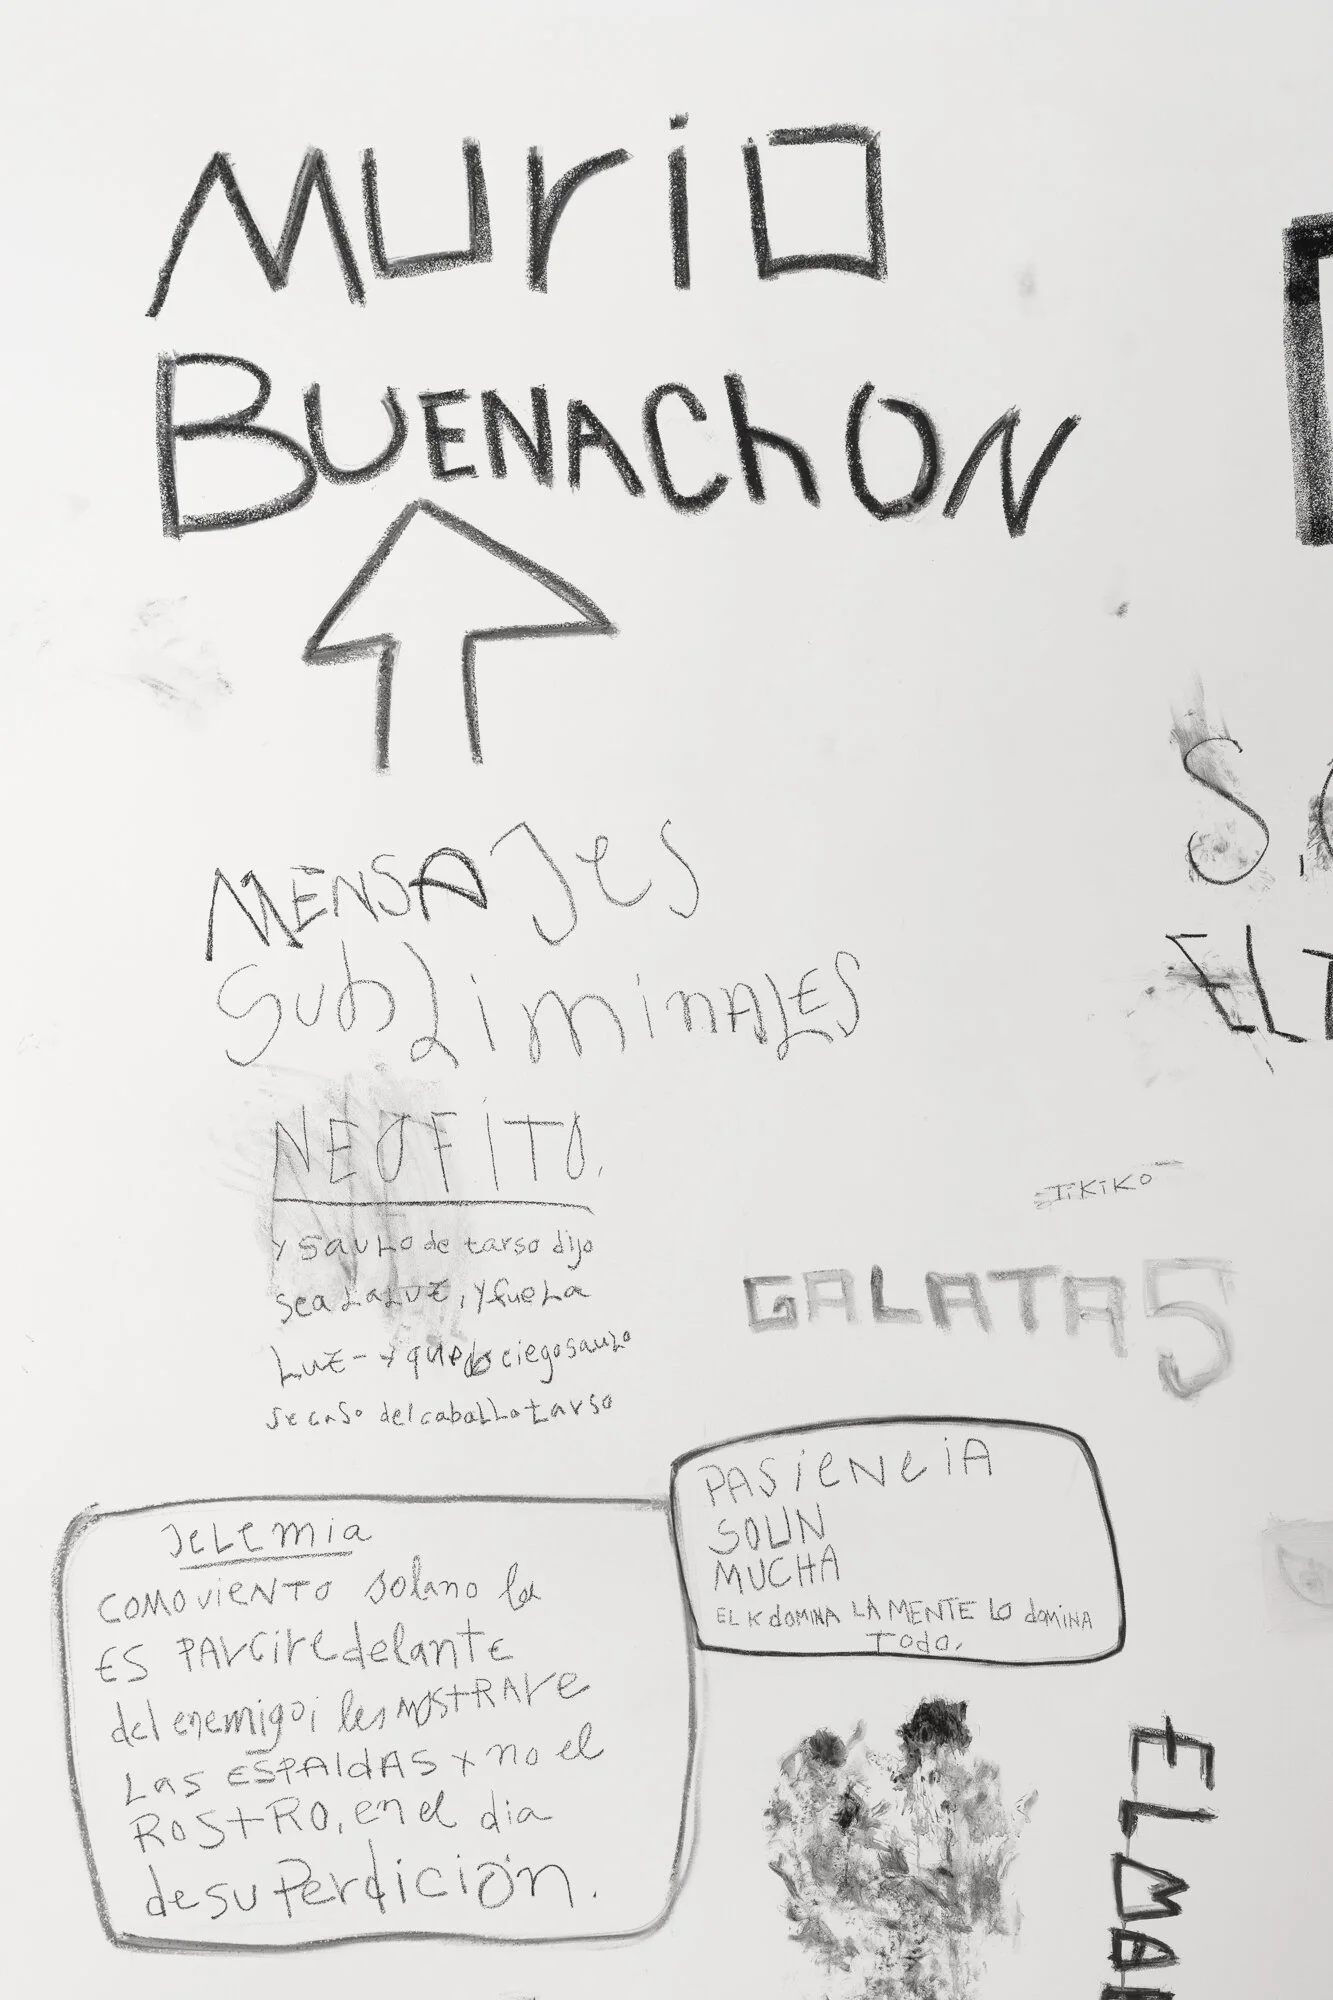 MUriO
BUENAChON
MENSAJeS
SubLiminALES
NEOFITO.
y SauLo de tarso dijo
sea LaLUZ, y fue La
LUZ - y quedo ciego sauLo
se caso del caballo tarso
JiKiKO
GALATA 5
PASiENciA
SOUN
MUCHA
EL K dOMINA LA MENTE LO domina
Todo.
JeLemia
COMO VIENTO Solano la
ES PArcire delante
del enemigo i les MOStRAre
LAS ESPAldAS y no el
ROStRO, en el dia
de su Perdición.
S.
EL
EL MA